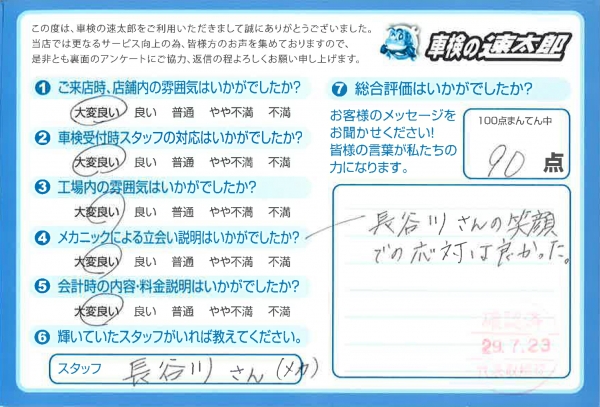 この度は、車検の速太郎をご利用いただきまして誠にありがとうございました。
当店では更なるサービス向上の為、皆様方のお声を集めておりますので、
是非とも裏面のアンケートにご協力、返信の程よろしくお願い申し上げます。
車検の速太郎
1 ご来店時、店舗内の雰囲気はいかがでしたか?
大変良い 良い 普通 やや不満 不満
2 車検受付時スタッフの対応はいかがでしたか?
大変良い 良い 普通 やや不満 不満
3 工場内の雰囲気はいかがでしたか?
大変良い 良い 普通 やや不満 不満
4 メカニックによる立会い説明はいかがでしたか?
大変良い 良い 普通 やや不満 不満
5 会計時の内容・料金説明はいかがでしたか?
大変良い 良い 普通 やや不満 不満
6 輝いていたスタッフがいれば教えてください。
スタッフ 長谷川さん(メカ)
7 総合評価はいかがでしたか?
お客様のメッセージを
お聞かせください!
皆様の言葉が私たちの
力になります。
100点まんてん中
90点
長谷川さんの笑顔
での応対は良かった。
確認済
29.7.23